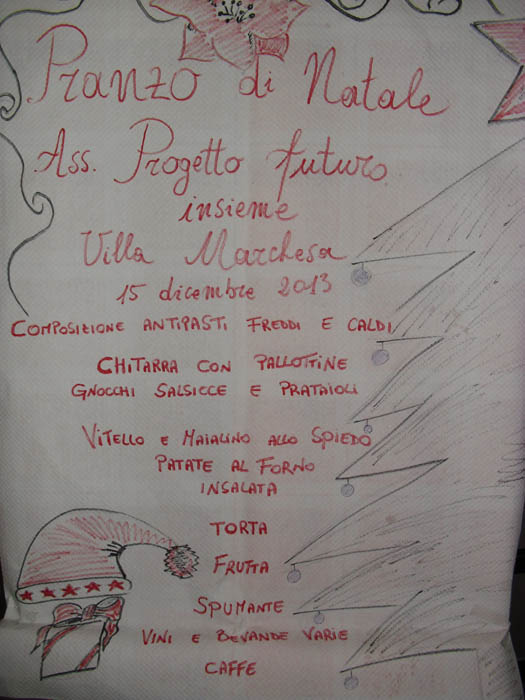 Pranzo di Natale
Ass. Progetto futuro
insieme
Villa Marchesa
15 dicembre 2013
COMPOSIZIONE ANTIPASTI FREDDI E CALDI
CHITARRA CON PALLOTTINE
GNOCCHI SALSICCE E PRATAIOLI
VITELLO E MAIALINO ALLO SPIEDO
PATATE AL FORNO
INSALATA
TORTA
FRUTTA
SPUMANTE
VINI E BEVANDE VARIE
CAFFE